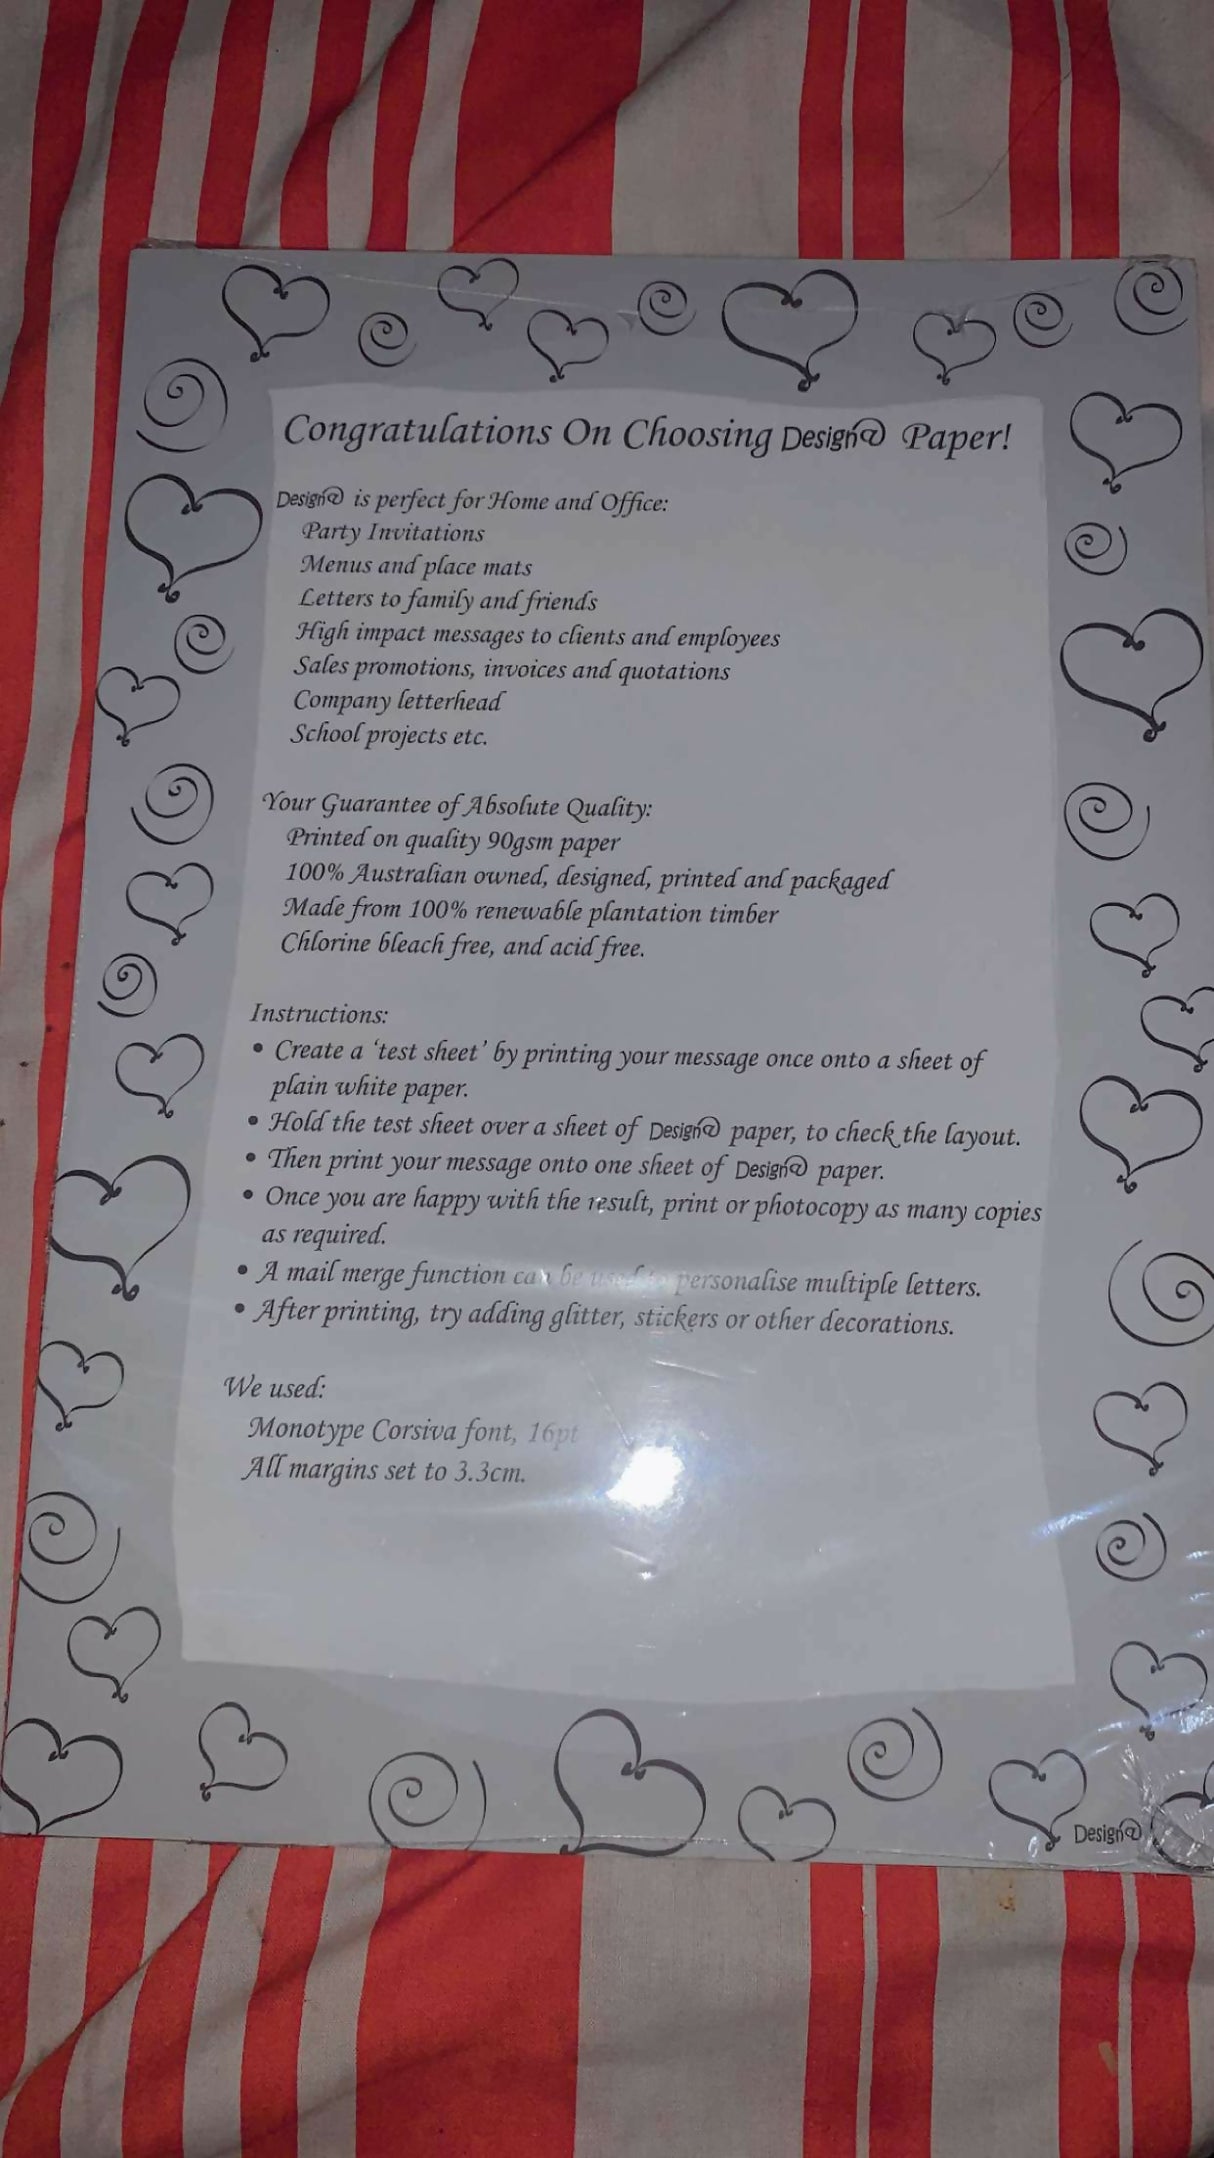 Congratulations On Choosing Design@ Paper!
Design@ is perfect for Home and Office:
Party Invitations
Menus and place mats
Letters to family and friends
High impact messages to clients and employees
Sales promotions, invoices and quotations
Company letterhead
School projects etc.
Your Guarantee of Absolute Quality:
Printed on quality 90gsm paper
100% Australian owned, designed, printed and packaged
Made from 100% renewable plantation timber
Chlorine bleach free, and acid free.
Instructions:
• Create a ‘test sheet’ by printing your message once onto a sheet of
plain white paper.
• Hold the test sheet over a sheet of Design@ paper, to check the layout.
• Then print your message onto one sheet of Design@ paper.
• Once you are happy with the result, print or photocopy as many copies
as required.
• A mail merge function can be used to personalise multiple letters.
• After printing, try adding glitter, stickers or other decorations.
We used:
Monotype Corsiva font, 16pt
All margins set to 3.3cm.
Design@